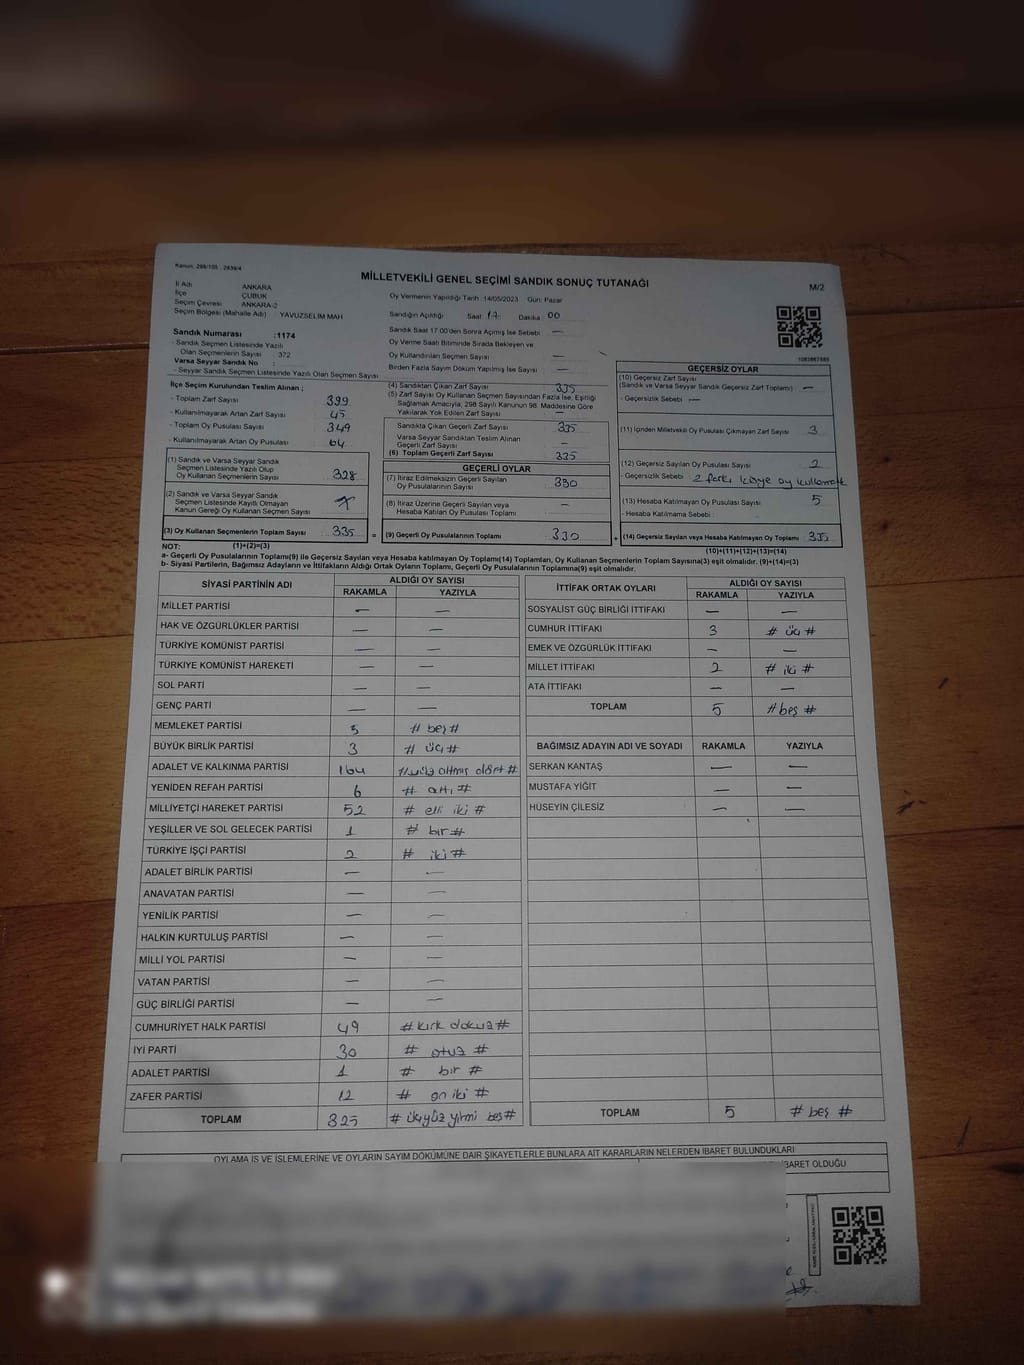 Kanun: 298/105 : 2839/4
MİLLETVEKİLİ GENEL SEÇİMİ SANDIK SONUÇ TUTANAĞI
M/2
İl Adı ANKARA
İlçe ÇUBUK
Seçim Çevresi ANKARA-2
Seçim Bölgesi (Mahalle Adı) : YAVUZSELİM MAH
Oy Vermenin Yapıldığı Tarih :14/05/2023 Gün: Pazar
Sandığın Açıldığı Saat 17 Dakika 00
Sandık Saat 17:00'den Sonra Açımış İse Sebebi : —
Oy Verme Saati Bitiminde Sırada Bekleyen ve
Oy Kullandırılan Seçmen Sayısı —
Birden Fazla Sayım Döküm Yapılmış İse Sayısı —
Sandık Numarası :1174
- Sandık Seçmen Listesinde Yazılı
Olan Seçmenlerin Sayısı : 372
Varsa Seyyar Sandık No :
- Seyyar Sandık Seçmen Listesinde Yazılı Olan Seçmen Sayısı
İlçe Seçim Kurulundan Teslim Alınan ;
- Toplam Zarf Sayısı 399
- Kullanılmayarak Artan Zarf Sayısı 45
- Toplam Oy Pusulası Sayısı 349
- Kullanılmayarak Artan Oy Pusulası 64
(1) Sandık ve Varsa Seyyar Sandık
Seçmen Listesinde Yazılı Olup
Oy Kullanan Seçmenlerin Sayısı 328
(2) Sandık ve Varsa Seyyar Sandık
Seçmen Listesinde Kayıtlı Olmayan
Kanun Gereği Oy Kullanan Seçmen Sayısı 7
(3) Oy Kullanan Seçmenlerin Toplam Sayısı 335
(4) Sandıktan Çıkan Zarf Sayısı 335
(5) Zarf Sayısı Oy Kullanan Seçmen Sayısından Fazla İse, Eşitliği
Sağlamak Amacıyla, 298 Sayılı Kanunun 98. Maddesine Göre
Yakılarak Yok Edilen Zarf Sayısı —
Sandıkta Çıkan Geçerli Zarf Sayısı 335
Varsa Seyyar Sandıktan Teslim Alınan
Geçerli Zarf Sayısı —
(6) Toplam Geçerli Zarf Sayısı 335
GEÇERLİ OYLAR
(7) İtiraz Edilmeksizin Geçerli Sayılan
Oy Pusulalarının Sayısı 330
(8) İtiraz Üzerine Geçerli Sayılan veya
Hesaba Katılan Oy Pusulası Toplamı —
= (9) Geçerli Oy Pusulalarının Toplamı 330
1083867885
GEÇERSİZ OYLAR
(10) Geçersiz Zarf Sayısı
(Sandık ve Varsa Seyyar Sandık Geçersiz Zarf Toplamı) —
- Geçersizlik Sebebi : —
(11) İçinden Milletvekili Oy Pusulası Çıkmayan Zarf Sayısı 3
(12) Geçersiz Sayılan Oy Pusulası Sayısı 2
- Geçersizlik Sebebi : 2 farkı kişiye oy kullanmak
(13) Hesaba Katılmayan Oy Pusulası Sayısı 5
- Hesaba Katılmama Sebebi :
+ (14) Geçersiz Sayılan veya Hesaba Katılmayan Oy Toplamı 335
NOT: (1)+(2)=(3)
(10)+(11)+(12)+(13)=(14)
a- Geçerli Oy Pusulalarının Toplamı(9) ile Geçersiz Sayılan veya Hesaba katılmayan Oy Toplamı(14) Toplamları, Oy Kullanan Seçmenlerin Toplam Sayısına(3) eşit olmalıdır. (9)+(14)=(3)
b- Siyasi Partilerin, Bağımsız Adayların ve İttifakların Aldığı Ortak Oyların Toplamı, Geçerli Oy Pusulalarının Toplamına(9) eşit olmalıdır.
SİYASİ PARTİNİN ADI ALDIĞI OY SAYISI
RAKAMLA YAZIYLA
MİLLET PARTİSİ — —
HAK VE ÖZGÜRLÜKLER PARTİSİ — —
TÜRKİYE KOMÜNİST PARTİSİ — —
TÜRKİYE KOMÜNİST HAREKETİ — —
SOL PARTİ — —
GENÇ PARTİ — —
MEMLEKET PARTİSİ 5 # beş #
BÜYÜK BİRLİK PARTİSİ 3 # üç #
ADALET VE KALKINMA PARTİSİ 164 # yüz altmış dört #
YENİDEN REFAH PARTİSİ 6 # altı #
MİLLİYETÇİ HAREKET PARTİSİ 52 # elli iki #
YEŞİLLER VE SOL GELECEK PARTİSİ 1 # bir #
TÜRKİYE İŞÇİ PARTİSİ 2 # iki #
ADALET BİRLİK PARTİSİ — —
ANAVATAN PARTİSİ — —
YENİLİK PARTİSİ — —
HALKIN KURTULUŞ PARTİSİ — —
MİLLİ YOL PARTİSİ — —
VATAN PARTİSİ — —
GÜÇ BİRLİĞİ PARTİSİ — —
CUMHURİYET HALK PARTİSİ 49 # kırk dokuz #
İYİ PARTİ 30 # otuz #
ADALET PARTİSİ 1 # bir #
ZAFER PARTİSİ 12 # on iki #
TOPLAM 325 # üçyüz yirmi beş #
İTTİFAK ORTAK OYLARI ALDIĞI OY SAYISI
RAKAMLA YAZIYLA
SOSYALİST GÜÇ BİRLİĞİ İTTİFAKI — —
CUMHUR İTTİFAKI 3 # üç #
EMEK VE ÖZGÜRLÜK İTTİFAKI — —
MİLLET İTTİFAKI 2 # iki #
ATA İTTİFAKI — —
TOPLAM 5 # beş #
BAĞIMSIZ ADAYIN ADI VE SOYADI RAKAMLA YAZIYLA
SERKAN KANTAŞ — —
MUSTAFA YİĞİT — —
HÜSEYİN ÇİLESİZ — —
TOPLAM 5 # beş #
OYLAMA İŞ VE İŞLEMLERİNE VE OYLARIN SAYIM DÖKÜMÜNE DAİR ŞİKAYETLERLE BUNLARA AİT KARARLARIN NELERDEN İBARET BULUNDUKLARI
İBARET OLDUĞU